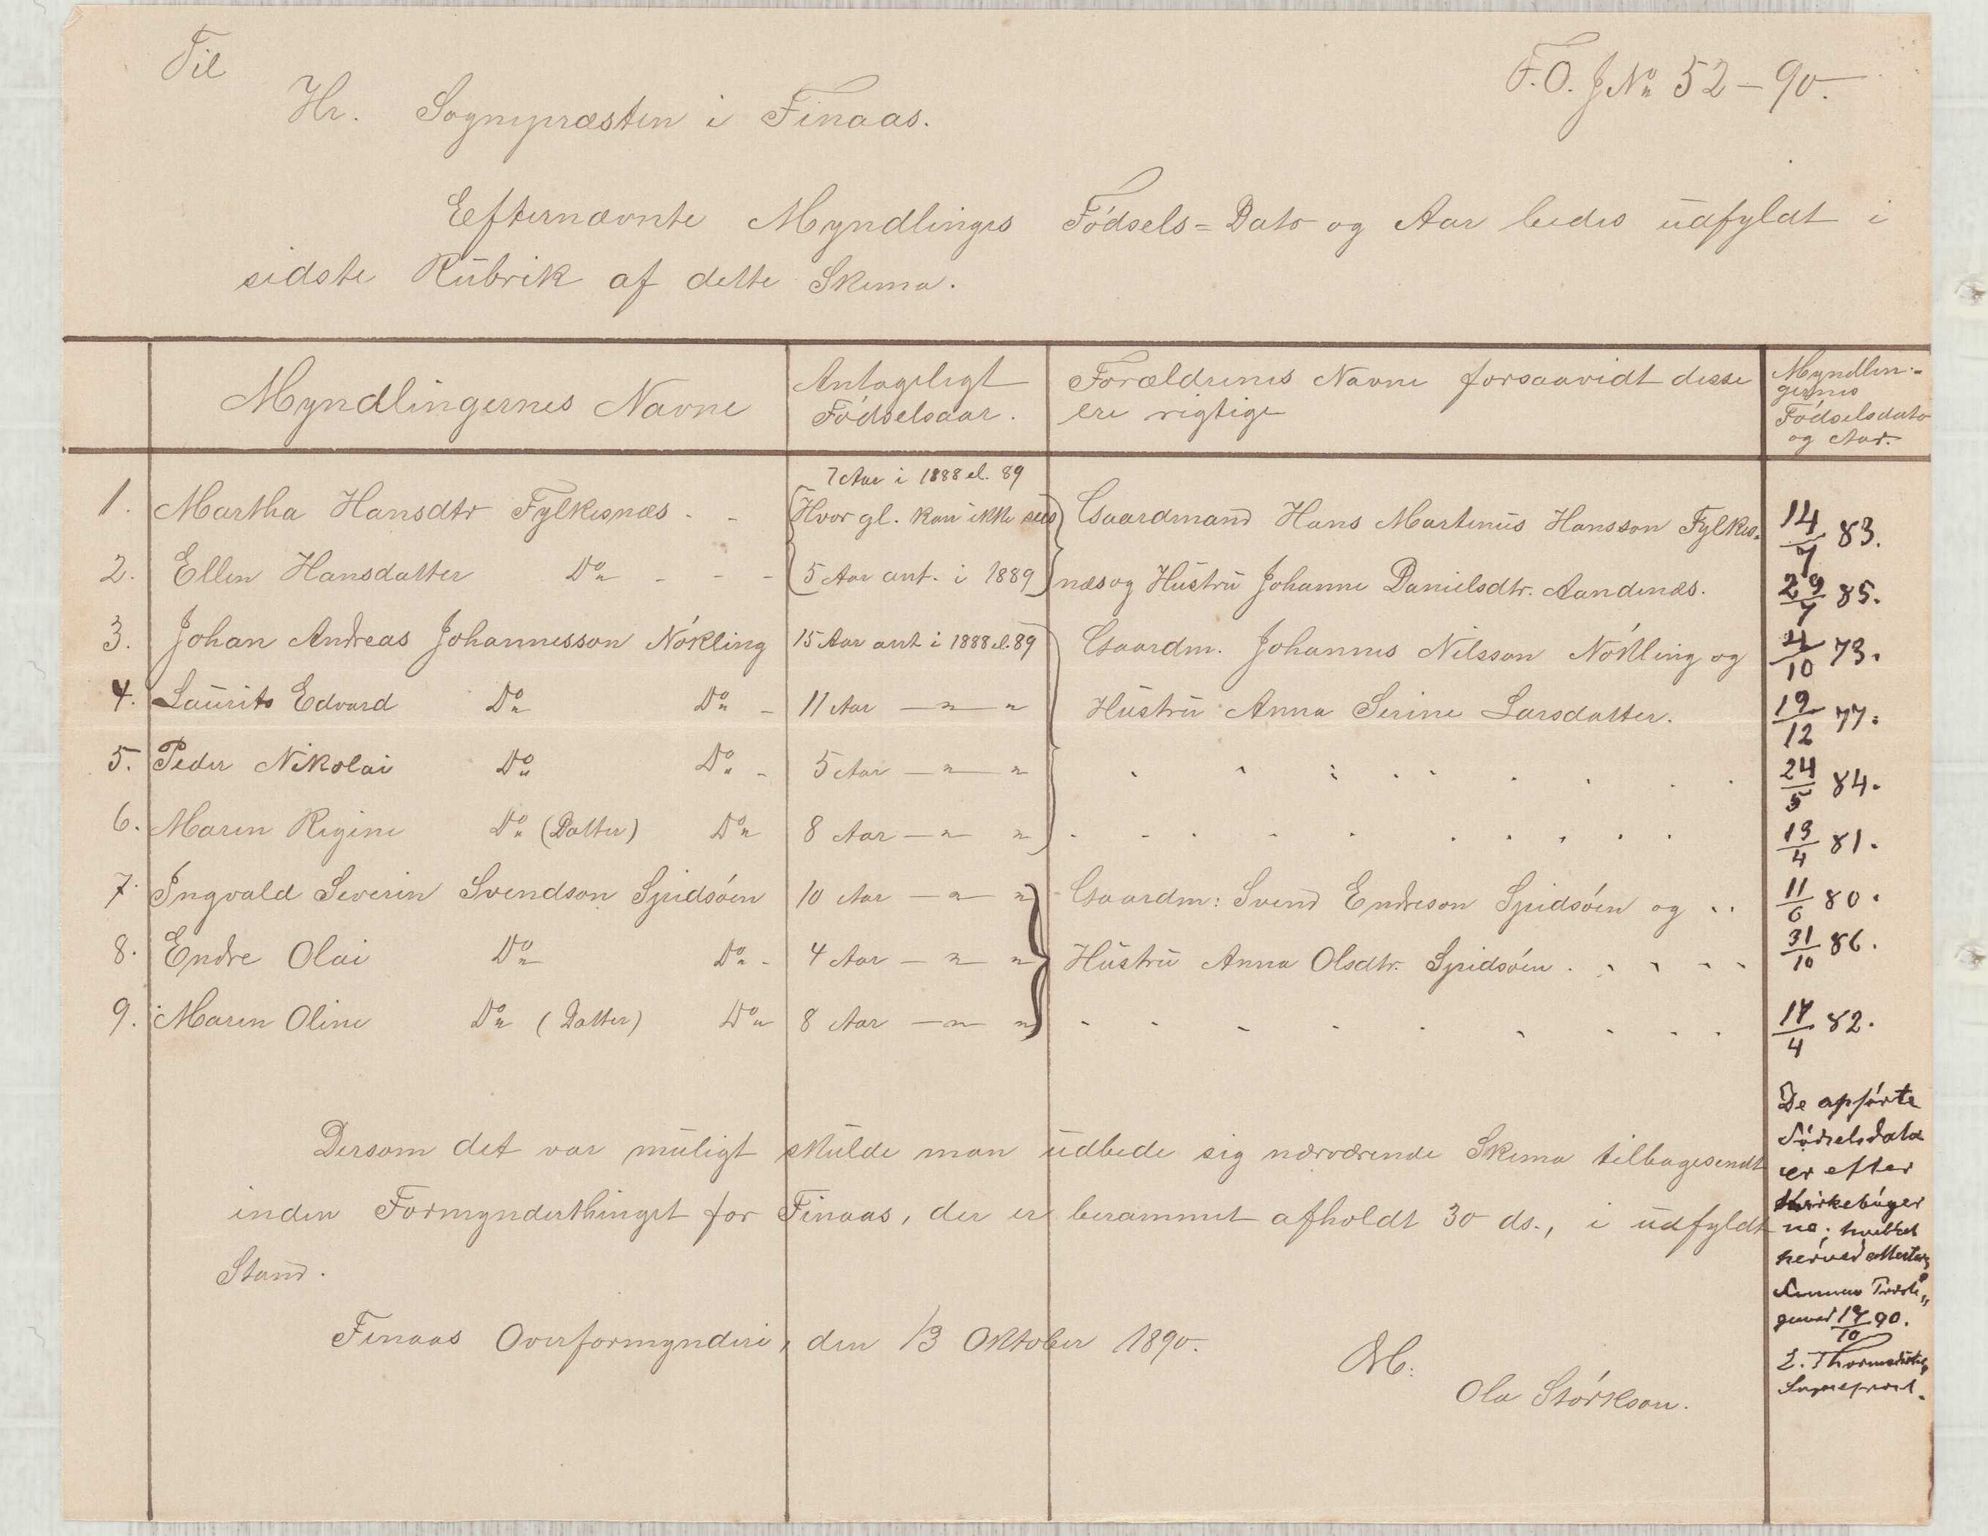 Til
F.O. J No 52–90.
Hr. Sognepræsten i Finaas.
Efternævnte Myndlinges Fødsels=Dato og Aar bedes udfyldt i
sidste Rubrik af dette Skema.
Myndlingernes Navne
Antageligt
Fødselsaar.
Forældrenes Navne forsaavidt disse
ere rigtige
Myndlin-
gernes
Fødselsdato
og Aar.
7 Aar i 1888 el. 89
1. Martha Hansdtr Fylkesnæs - - Hvor gl. kan ikke sees Gaardmand Hans Martinus Hansson Fylkes- 14/7 83.
2. Ellen Hansdatter Do - - - 5 Aar ant. i 1889 næs og Hustru Johanne Danielsdtr. Aandenæs. 29/7 85.
3. Johan Andreas Johannesson Nøkling 15 Aar ant i 1888 el. 89 Gaardm. Johannes Nilsson Nøkling og 4/10 73.
4. Laurits Edvard Do Do - 11 Aar — " — " Hustru Anna Serine Larsdatter. 19/12 77.
5. Peder Nikolai Do Do - 5 Aar — " — " 24/5 84.
6. Maren Regine Do (Datter) Do 8 Aar — " — " 13/4 81.
7. Ingvald Severin Svendson Spidsøen 10 Aar — " — " Gaardm: Svend Endreson Spidsøen og 11/6 80.
8. Endre Olai Do Do - 4 Aar — " — " Hustru Anna Olsdtr. Spidsøen. 31/10 86.
9. Maren Oline Do (Datter) Do 8 Aar — " — " 17/4 82.
Dersom det var muligt skulde man udbede sig nærværende Skema tilbagesendt
inden Formynderthinget for Finaas, der er berammet afholdt 30 ds., i udfyldt
Stand.
Finaas Overformynderi, den 13 Oktober 1890.
Ola Størkson.
De opførte
Fødselsdata
er efter
Kirkebøger
ne; hvilket
herved attesteres
Finnaas Præste
gaard 17/10 90.
Sognepræst.